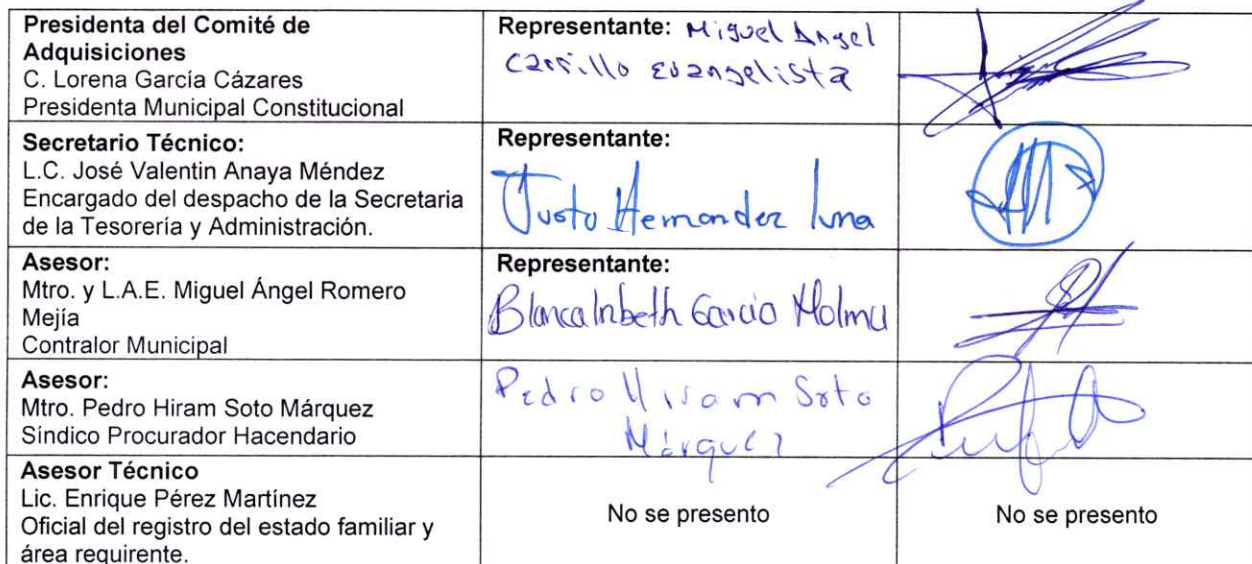 Presidenta del Comité de
Adquisiciones
C. Lorena García Cázares
Presidenta Municipal Constitucional
Representante: Miguel Angel
Carrillo Evangelista
Secretario Técnico:
L.C. José Valentin Anaya Méndez
Encargado del despacho de la Secretaria
de la Tesorería y Administración.
Representante:
Justo Hernandez luna
Asesor:
Mtro. y L.A.E. Miguel Ángel Romero
Mejía
Contralor Municipal
Representante:
Blanca García
Asesor:
Mtro. Pedro Hiram Soto Márquez
Síndico Procurador Hacendario
Pedro Hiram Soto
Márquez
Asesor Técnico
Lic. Enrique Pérez Martínez
Oficial del registro del estado familiar y
área requirente.
No se presento
No se presento